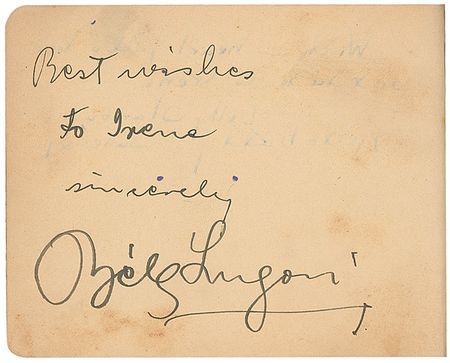 Best wishes
to Irene
sincerely
Béla Lugosi